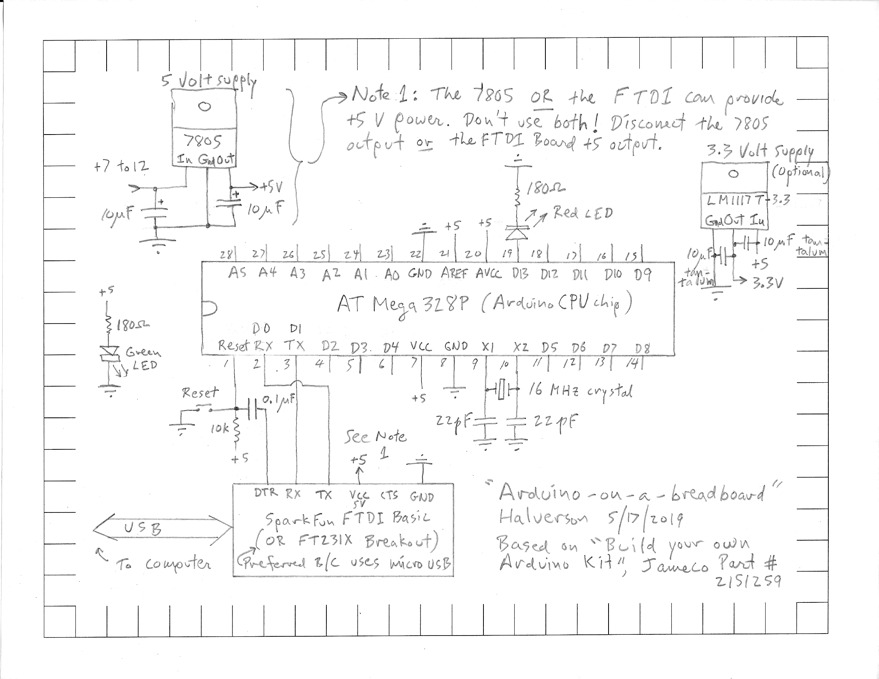 5 Volt supply
7805
In Gnd Out
+7 to 12
+5V
10µF
10µF
Note 1: The 7805 OR the FTDI can provide
+5 V power. Don't use both! Disconect the 7805
output or the FTDI Board +5 output.
3.3 Volt Supply
(Optional)
LM1117T-3.3
Gnd Out In
10µF tan-
talum
10µF
tan-
talum
+5
3.3V
180Ω
Red LED
+5 +5
28 27 26 25 24 23 22 21 20 19 18 17 16 15
A5 A4 A3 A2 A1 A0 GND AREF AVCC D13 D12 D11 D10 D9
AT Mega 328P (Arduino CPU chip)
D0 D1
Reset RX TX D2 D3 D4 VCC GND X1 X2 D5 D6 D7 D8
1 2 3 4 5 6 7 8 9 10 11 12 13 14
+5
180Ω
Green
LED
Reset
0.1µF
10k
+5
+5
16 MHz crystal
22pF
22pF
See Note
1
+5
DTR RX TX VCC CTS GND
5V
SparkFun FTDI Basic
(OR FT231X Breakout)
(Preferred B/C uses micro USB
USB
To computer
"Arduino-on-a-breadboard"
Halverson 5/17/2019
Based on "Build your own
Arduino Kit", Jameco Part #
2151259